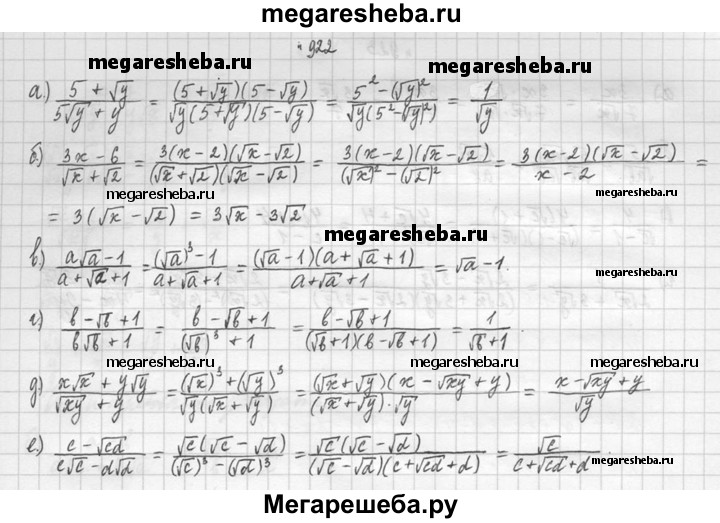 megaresheba.ru
№ 922
megaresheba.ru megaresheba.ru
а) (5 + √y)/(5√y + y) = ((5+√y)(5-√y))/(√y(5+√y)(5-√y)) = (5² - (√y)²)/(√y(5² - (√y)²)) = 1/√y
б) (3x - 6)/(√x + √2) = (3(x-2)(√x - √2))/((√x + √2)(√x - √2)) = (3(x-2)(√x - √2))/((√x)² - (√2)²) = (3(x-2)(√x - √2))/(x - 2) =
megaresheba.ru megaresheba.ru
= 3(√x - √2) = 3√x - 3√2
megaresheba.ru
в) (a√a - 1)/(a + √a + 1) = ((√a)³ - 1)/(a + √a + 1) = ((√a - 1)(a + √a + 1))/(a + √a + 1) = √a - 1.
megaresheba.ru
г) (b - √b + 1)/(b√b + 1) = (b - √b + 1)/((√b)³ + 1) = (b - √b + 1)/((√b + 1)(b - √b + 1)) = 1/(√b + 1).
megaresheba.ru megaresheba.ru
д) (x√x + y√y)/(√xy + y) = ((√x)³ + (√y)³)/(√y(√x + √y)) = ((√x + √y)(x - √xy + y))/((√x + √y)·√y) = (x - √xy + y)/√y
е) (c - √cd)/(c√c - d√d) = (√c(√c - √d))/((√c)³ - (√d)³) = (√c(√c - √d))/((√c - √d)(c + √cd + d)) = √c/(c + √cd + d).
megaresheba.ru megaresheba.ru
Мегарешеба.ру